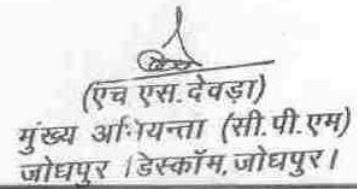 (एच एस.देवड़ा)
मुंख्य अभियन्ता (सी.पी.एम)
जोधपुर डिस्कॉम, जोधपुर।